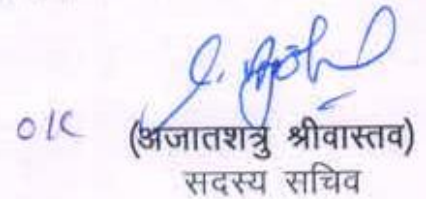 OK (अजातशत्रु श्रीवास्तव)
सदस्य सचिव